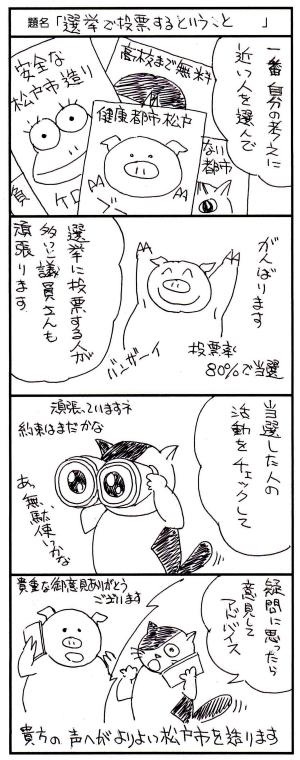 題名「選挙で投票するということ　」
一番自分の考えに
近い人を選んで
高校まで無料
安全な
松戸市造り
健康都市松戸
ない
都市
ケロ
がんばります
投票率
80%で当選
バンザーイ
選挙に投票する人が
多いと議員さんも
頑張ります
当選した人の
活動をチェックして
頑張っていますネ
約束はまだかな
あ、無駄
使いかな
疑問に思ったら
意見して
アドバイス
貴重な御意見ありがとう
ございます
貴方の声へがよりよい松戸市を造ります